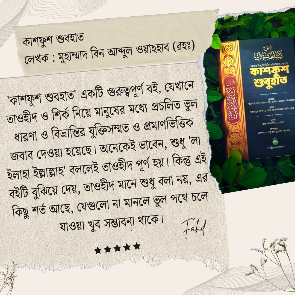 কাশফুশ শুবহাত
লেখক : মুহাম্মাদ বিন আব্দুল ওয়াহহাব (রহঃ)
'কাশফুশ শুবহাত' একটি গুরুত্বপূর্ণ বই, যেখানে
তাওহীদ ও শির্ক নিয়ে মানুষের মধ্যে প্রচলিত ভুল
ধারণা ও বিভ্রান্তির যুক্তিসম্মত ও প্রমাণভিত্তিক
জবাব দেওয়া হয়েছে। অনেকেই ভাবেন, শুধু 'লা
ইলাহা ইল্লাল্লাহ' বললেই তাওহীদ পূর্ণ হয়। কিন্তু এই
বইটি বুঝিয়ে দেয়, তাওহীদ মানে শুধু বলা নয়, এর
কিছু শর্ত আছে, যেগুলো না মানলে ভুল পথে চলে
যাওয়া খুব সম্ভাবনা থাকে।
Fahd
কাশফুশ
শুবুহাত